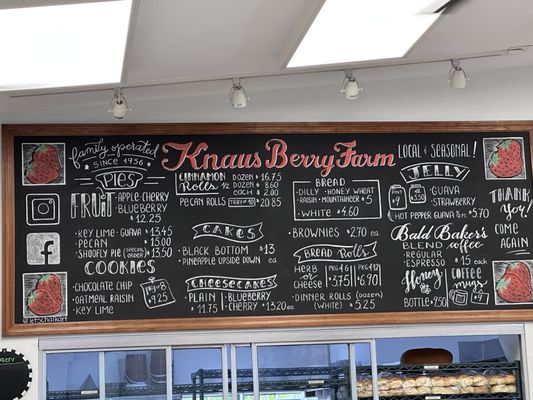 family operated
since 1956
PIES
FRUIT
APPLE·CHERRY
BLUEBERRY
12.25
KEY LIME · GUAVA 13.45
PECAN 15.00
SHOOFLY PIE (SPECIAL ORDER) 13.50
COOKIES
CHOCOLATE CHIP
OATMEAL RAISIN
KEY LIME
Knaus Berry Farm
CINNAMON Rolls
DOZEN $16.75
½ DOZEN $8.60
EACH $2.00
PECAN ROLLS 20.85
CAKES
BLACK BOTTOM
PINEAPPLE UPSIDE DOWN
$13 EA
CHEESECAKES
PLAIN 11.75
BLUEBERRY
CHERRY 13.20 EA
BREAD
DILLY · HONEY WHEAT
RAISIN · MOUNTAINEER $5
WHITE $4.60
BROWNIES $2.70 EA
BREAD ROLLS
HERB or CHEESE
PKG 4 $3.75
PKG 8 $6.90
DINNER ROLLS (DOZEN)
(WHITE) $5.25
LOCAL & SEASONAL!
JELLY
GUAVA
STRAWBERRY
HOT PEPPER GUAVA
$5.70
Bald Baker's
BLEND coffee
REGULAR
ESPRESSO
$15 EACH
Honey
BOTTLE
COFFEE mugs
$9
THANK You!
COME AGAIN